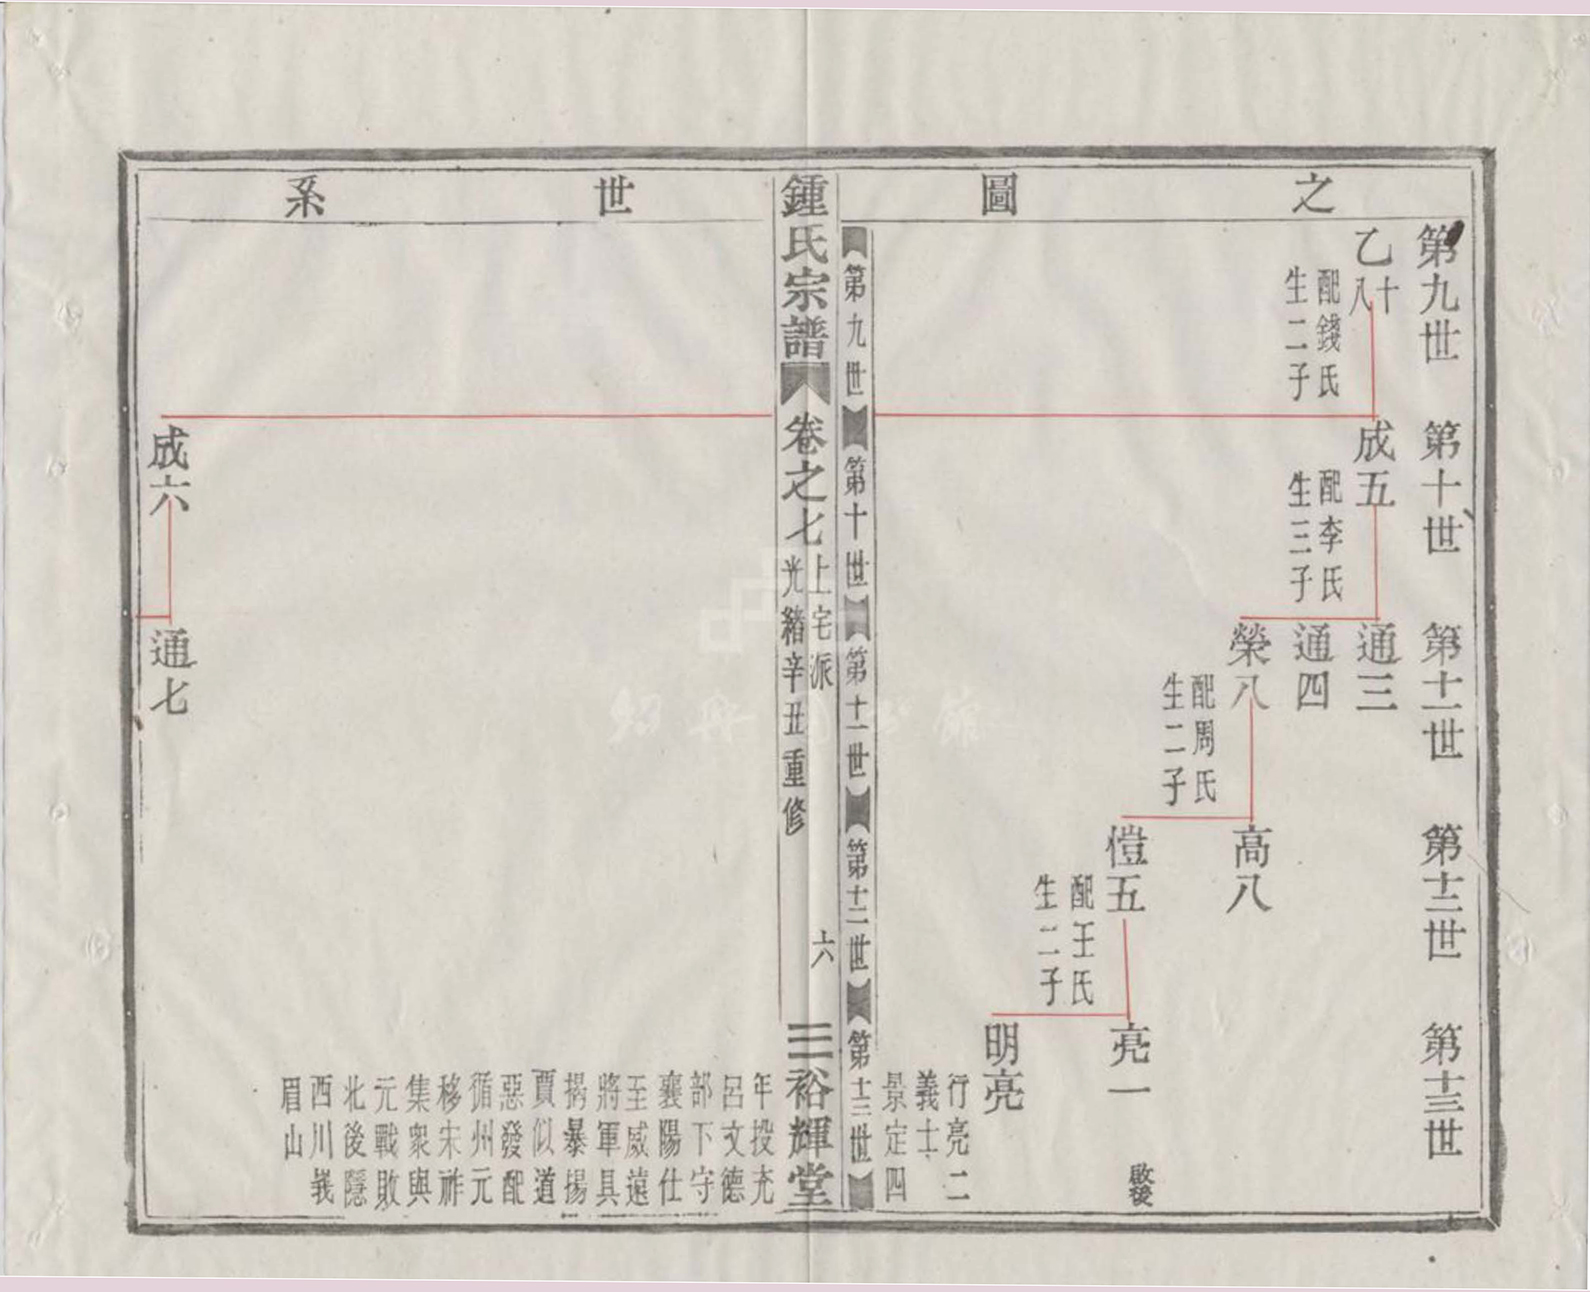 之圖
第九世
第十世
第十一世
第十二世
第十三世
乙十八
配錢氏
生二子
成五
配李氏
生三子
通三
通四
榮八
配周氏
生二子
高八
愷五
配王氏
生二子
亮一
啟後
明亮
行亮二
義士
景定四
第九世
第十世
第十一世
第十二世
第十三世
鍾氏宗譜
卷之七
上宅派
光緒辛丑重修
六
三裕輝堂
世系
年投充
呂文德
部下守
襄陽仕
至威遠
將軍具
揭暴揚
賈似道
惡發配
循州元
移宋祚
集衆與
元戰敗
北後隱
西川峩
眉山
成六
通七